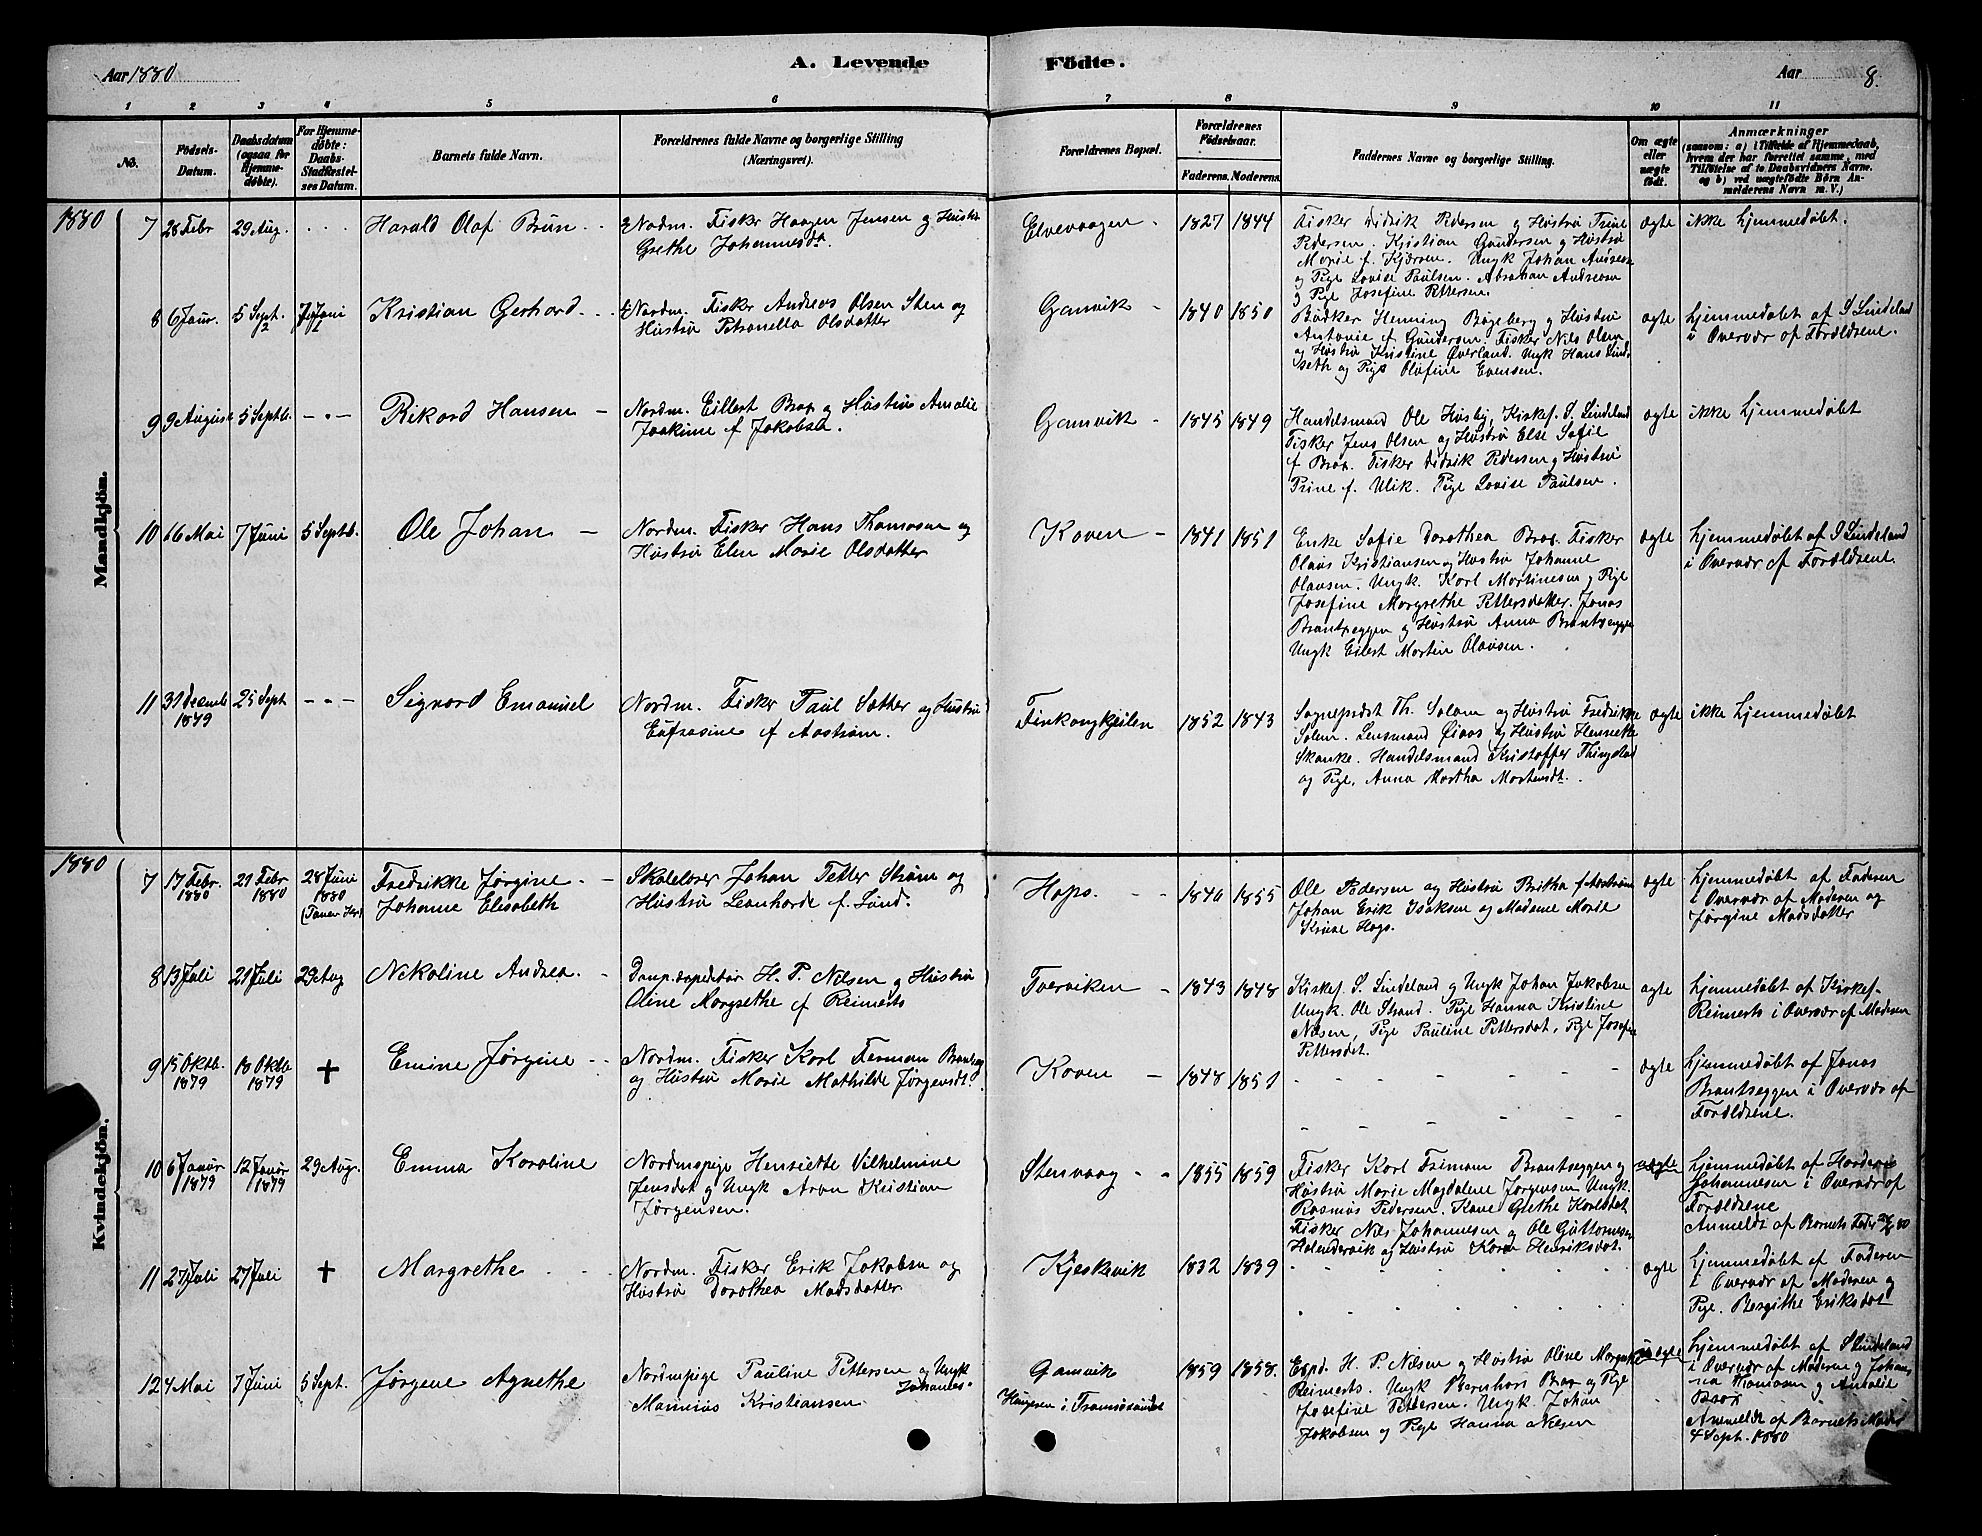 Aar 1880
A. Levende Födte.
Aar 8.
1 2 3 4 5 6 7 8 9 10 11
No.
Födsels-
Datum.
Daabsdatum
(ogsaa for
Hjemme-
döbte).
For Hjemme-
döbte:
Daabs-
Stadfæstel-
ses Datum.
Barnets fulde Navn.
Forældrenes fulde Navne og borgerlige Stilling
(Næringsvei).
Forældrenes Bopæl.
Forældrenes
Födselsaar.
Faderens. Moderens.
Faddernes Navne og borgerlige Stilling.
Om ægte
eller
uægte
födt.
Anmærkninger
(saasom: a) i Tilfælde af Hjemmedaab,
hvem der har forrettet samme, med
Tilföielse af to Daabsvidners Navne,
og b) ved uægtefödte Börn An-
melderens Navn m. V.)
Mandkjön.
1880
7 28 Febr 29 Aug. Harald Olaf Brun
Nordm. Fisker Haagen Jensen og Hustru
Grethe Johannesdr.
Elvevaagen 1827 1844
Fisker Didrik Pedersen og Hustru Trine
Pedersen. Kristian Gundersen og Hustru
Marie f. Kjærven. Ungk Johan Andersen
og Pige Lovise Paulsen. Abraham Andersen
og Pige Josefine Pettersen.
ægte ikke hjemmedøbt.
8 6 Janr. 5 Sept. 7 Juni Kristian Gerhard
Nordm. Fisker Andreas Olsen Sten og
Hustru Petronella Olsdatter
Gamvik 1840 1850
Bødker Henning Bogeberg og Hustru
Antonie f. Gundersen. Fisker Nils Olsen
og Hustru Kristine Øverland. Ungk Hans Lind-
seth og Pige Olufine Evensen.
ægte hjemmedøbt af S Lindeland
i Overvær af Forældrene.
9 9 August 5 Septb. Rikard Hansen
Nordm. Eillert Braa og Hustru Amalie
Joakime f Jakobsen.
Gamvik 1845 1849
Handelsmand Ole Husby, Kirkes. S. Lindeland
Fisker Jens Olsen og Hustru Else Sofie
f Braa. Fisker Didrik Pedersen og Hustru
Trine f. Ulik. Pige Lovise Paulsen.
ægte ikke hjemmedøbt
10 16 Mai 7 Juni 5 Septb. Ole Johan
Nordm. Fisker Hans Thomasen og
Hustru Elen Marie Olsdatter
Koven 1841 1851
Enke Sofie Dorothea Braa. Fisker
Olaus Kristiansen og Hustru Johanne
Olausen. Ungk. Karl Martinesen og Pige
Josefine Margrethe Pettersdatter. Jonas
Brantseggen og Hustru Anna Brantsegge
Ungk Eilert Martin Olausen.
ægte hjemmedøbt af S Lindeland
i Overvær af Forældrene.
11 31 Decemb 1879 25 Sept Sigvard Emanuel
Nordm. Fisker Paul Sæther og Hustru
Eufrasine f Aastrøm.
Finkongkjeilen 1852 1843
Sogneprest Th. Solem og Hustru Fredrikke
Solem. Lensmand Øiaas og Hustru Henriette
Skanke. Handelsmand Kristoffer Thingstad
og Pige. Anna Martha Mortensdt.
ægte ikke hjemmedøbt
Kvindekjön.
1880
7 17 Febr. 1880 21 Febr 1880 28 Juni 1880
Fredrikke Jørgine
Johanne Elisabeth
Skolelærer Johan Petter Strøm og
Hustru Leonharde f. Lund.
Hops. 1840 1855
Ole Pedersen og Hustru Britha f Aastrøm
Johan Erik Isaksen og Madame Marie
Kruse Hops.
ægte hjemmedøbt af Faderen
i Overvær af Moderen og
Jørgine Madsdatter
8 13 Juli 21 Juli 29 Aug Nikoline Andrea
Damp.expeditør H. P. Nilsen og Hustru
Oline Margrethe f Reimerts
Torviken 1843 1848
Kirkes. S. Lindeland og Ungk Johan Jakobsen
Ungk. Ole Strand. Pige Hanna Kristine
Nilsen, Pige Pauline Pettersdat. Pige Josefine
Pettersdat.
ægte hjemmedøbt af Kirkes.
Reimerts i Overvær af Moderen
9 15 Oktb. 1879 18 Oktb 1879 + Emine Jørgine
Nordm. Fisker Karl Ferman Brantseg
og Hustru Marie Mathilde Jørgensdt.
Koven 1848 1851
ægte hjemmedøbt af Jonas
Brantseggen i Overvær af
Forældrene.
10 6 Januar 1879 12 Januar 1879 29 Aug. Emma Karoline
Nordmspige Henriette Vilhelmine
Jensdat og Ungk Aron Kristian
Jørgensen.
Stensvaag 1855 1859
Fisker Karl Freman Brantseggen og
Hustru Marie Magdalene Jørgensen Ungk.
Rasmus Pedersen. Kone Grethe Karlsdat
Fisker Nils Johannesen og Ole Guttormsen
Holendervik og Hustru Karen Henriksdat.
uægte hjemmedøbt af
Johannesen i Overvær af
Forældrene
Anmeldt af Barnets Fader
11 27 Juli 27 Juli + Margrethe
Nordm. Fisker Erik Jakobsen og
Hustru Dorothea Madsdatter
Kjeskvik 1832 1839
ægte hjemmedøbt af Faderen
i Overvær af Moderen og
Pige. Bergithe Eriksdat
12 4 Mai 7 Juni 5 Sept. Jørgine Agnethe
Nordmspige Pauline Pettersen og Ungk
Johannes
Magnus Kristiansen
Gamvik
i Tromsøsundet
1859 1858.
Expd. H. P. Nilsen og Hustru Oline Margrethe
Reimerts. Ungk Bernhart Braa og Pige
Josefine Pettersen. Ungk. Johan
Jakobsen og Pige Hanna Nilsen
uægte hjemmedøbt af S Lindeland
i Overvær af Moderen og Johan-
na Thomasen og Amalie
Braa
Anmeldt af Barnets Moder
4 Sept. 1880